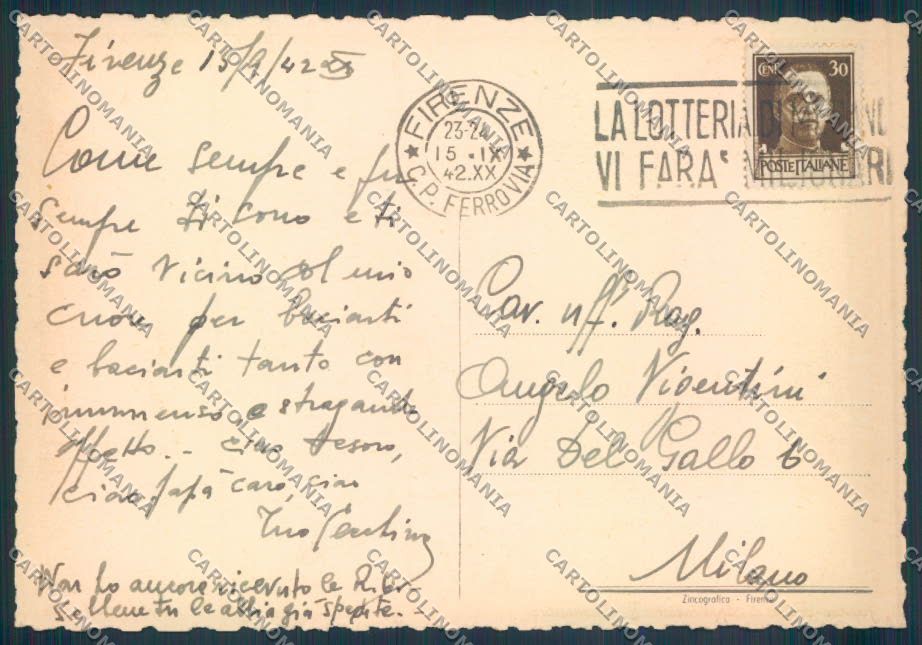 Firenze 15/9/42 XX
Come sempre e fu
sempre ti sono e ti
sarò vicino col mio
cuore per baciarti
e baciarti tanto con
immenso e stragrande
affetto.. ciao tesoro,
ciao papà caro, ciao
Non ho ancora ricevuto le
tu le abbia già spedite.
FIRENZE
23-24
15 . IX
42.XX
C.P. FERROVIA
LA LOTTERIA DI
VI FARA'
CENT. 30
POSTE ITALIANE
Cav. uff. Rag.
Angelo Vicentini
Via Del Gallo 6
Milano
Zincografica - Firenze
CARTOLINOMANIA